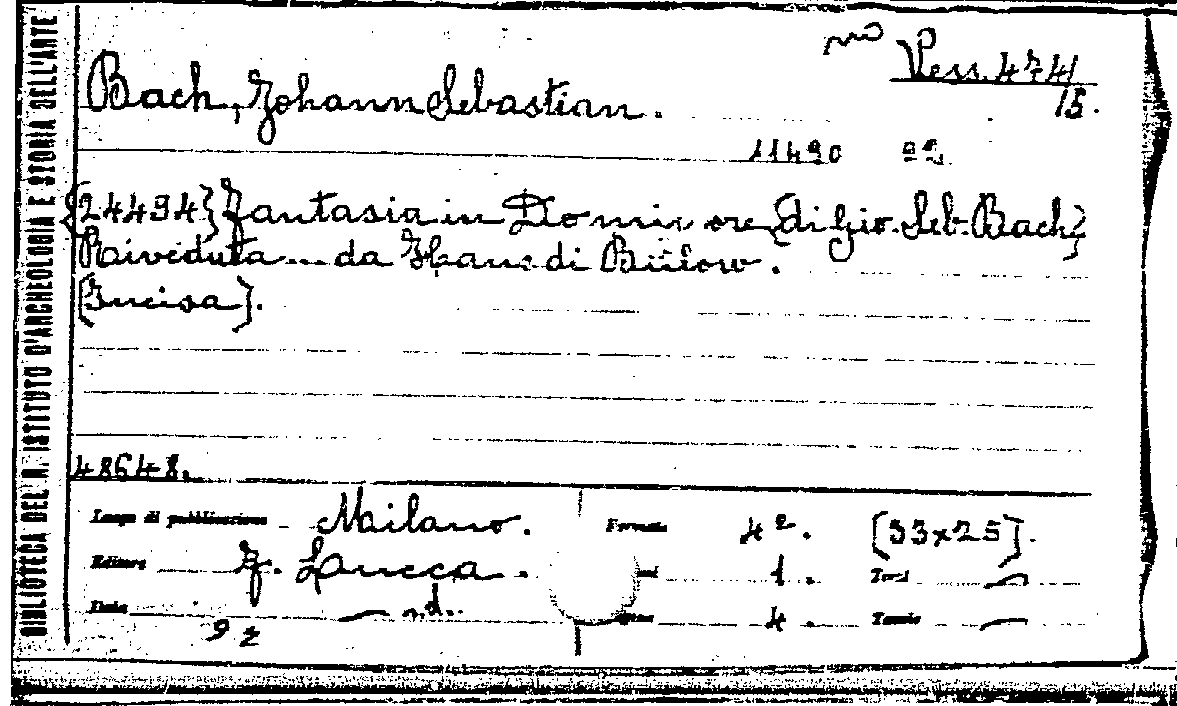 BIBLIOTECA DEL R. ISTITUTO D'ARCHEOLOGIA E STORIA DELL'ARTE
Vess. 4741
15.
Bach, Johann Sebastian.
11490
{24494} Fantasia in Do minore {di Gio. Seb. Bach}
Riveduta ... da Hans di Bülow.
[Incisa].
48648.
Luogo di pubblicazione Milano. Formato 4º. [33x25].
Editore F. Lucca. 1. Tavol —
Data — n.d. 4. Tavole —
92